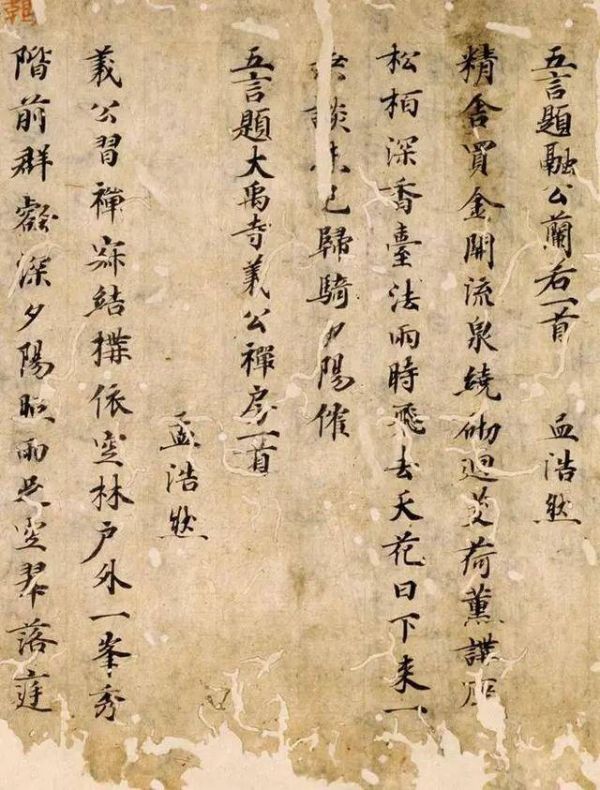 五言題融公蘭若一首 孟浩然
精舍買金開流泉繞砌迴芰荷薰講席
松柏深香臺法雨時飛去天花日下來一
談已歸騎夕陽催
五言題大禹寺義公禪房一首
孟浩然
義公習禪寂結構依空林戶外一峯秀
階前群壑深夕陽照雨足空翠落庭